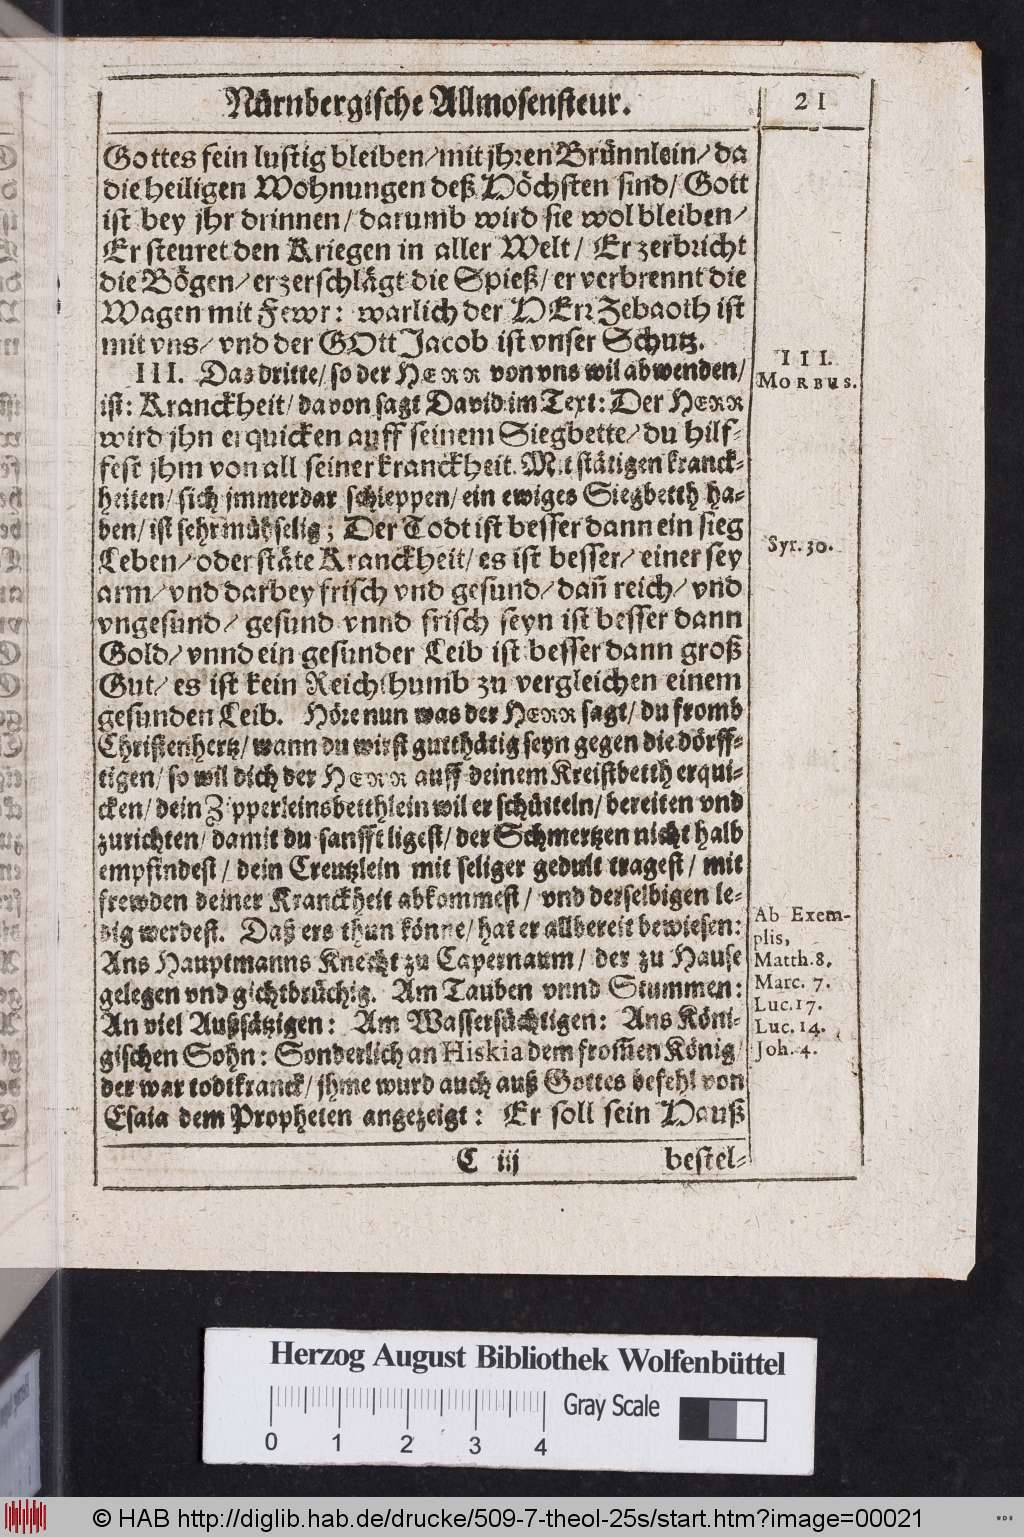 Nürnbergische Allmosensteur.
21
Gottes fein lustig bleiben/mit jhren Brünnlein/da
die heiligen Wohnungen deß Höchsten sind/ Gott
ist bey jhr drinnen/ darumb wird sie wol bleiben/
Er steuret den Kriegen in aller Welt/ Er zerbricht
die Bögen/ er zerschlägt die Spieß/ er verbrennt die
Wagen mit Fewr: warlich der HErr Zebaoth ist
mit vns/ vnd der GOtt Jacob ist vnser Schutz.
III. Das dritte/ so der HERR von vns wil abwenden/
ist: Kranckheit/ davon sagt David im Text: Der HERR
wird jhn erquicken auff seinem Siegbette/ du hilf-
fest jhm von all seiner kranckheit. Mit stätigen kranck-
heiten/ sich jmmerdar schleppen/ ein ewiges Siegbetth ha-
ben/ ist sehr mühselig; Der Todt ist besser dann ein sieg
Leben/ oder stäte Kranckheit/ es ist besser/ einer sey
arm/ vnd darbey frisch vnd gesund/ dañ reich/ vnd
vngesund/ gesund vnnd frisch seyn ist besser dann
Gold/ vnnd ein gesunder Leib ist besser dann groß
Gut/ es ist kein Reichthumb zu vergleichen einem
gesunden Leib. Höre nun was der HERR sagt/ du fromb
Christenhertz/ wann du wirst gutthätig seyn gegen die dörff-
tigen/ so wil dich der HERR auff deinem Kreistbetth erqui-
cken/ dein Zipperleinsbetthlein wil er schütteln/ bereiten vnd
zurichten/ damit du sanfft ligest/ der Schmertzen nicht halb
empfindest/ dein Creutzlein mit seliger gedult tragest/ mit
frewden deiner Kranckheit abkommest/ vnd derselbigen le-
dig werdest. Daß ers thun könne/ hat er allbereit bewiesen:
Ans Hauptmanns Knecht zu Capernaum/ der zu Hause
gelegen vnd gichtbrüchig. Am Tauben vnnd Stummen:
An viel Außsätzigen: Am Wassersüchtigen: Ans Köni-
gischen Sohn: Sonderlich an Hiskia dem from̃en König/
der war todtkranck/ jhme wurd auch auß Gottes befehl von
Esaia dem Propheten angezeigt: Er soll sein Hauß
C iij
bestel-
III.
MORBUS.
Syr. 30.
Ab Exem-
plis,
Matth. 8.
Marc. 7.
Luc. 17.
Luc. 14.
Joh. 4.
Herzog August Bibliothek Wolfenbüttel
Gray Scale
0 1 2 3 4
© HAB http://diglib.hab.de/drucke/509-7-theol-25s/start.htm?image=00021